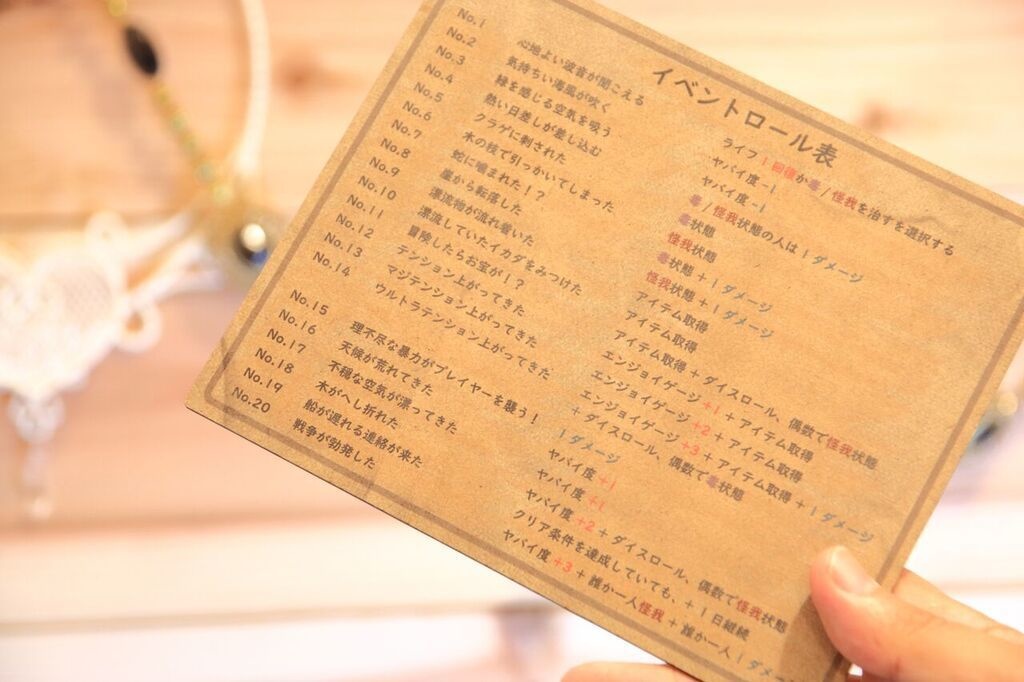 イベントロール表
No.1 心地よい波音が聞こえる ライフ1回復か毒/怪我を治すを選択する
No.2 気持ちい海風が吹く ヤバイ度-1
No.3 緑を感じる空気を吸う ヤバイ度-1
No.4 熱い日差しが差し込む 毒/怪我状態の人は1ダメージ
No.5 クラゲに刺された 毒状態
No.6 木の枝で引っかいてしまった 怪我状態
No.7 蛇に噛まれた!? 毒状態+1ダメージ
No.8 崖から転落した 怪我状態+1ダメージ
No.9 漂流物が流れ着いた アイテム取得
No.10 漂流していたイカダをみつけた アイテム取得
No.11 冒険したらお宝が!? アイテム取得+ダイスロール、偶数で怪我状態
No.12 テンション上がってきた エンジョイゲージ+1+アイテム取得
No.13 マジテンション上がってきた エンジョイゲージ+2+アイテム取得
No.14 ウルトラテンション上がってきた エンジョイゲージ+3+アイテム取得+1ダメージ
+ダイスロール、偶数で毒状態
No.15 理不尽な暴力がプレイヤーを襲う! 1ダメージ
No.16 天候が荒れてきた ヤバイ度+1
No.17 不穏な空気が漂ってきた ヤバイ度+1
No.18 木がへし折れた ヤバイ度+2+ダイスロール、偶数で怪我状態
No.19 船が遅れる連絡が来た クリア条件を達成していても、+1日継続
No.20 戦争が勃発した ヤバイ度+3+誰か一人怪我+誰か一人1ダメー